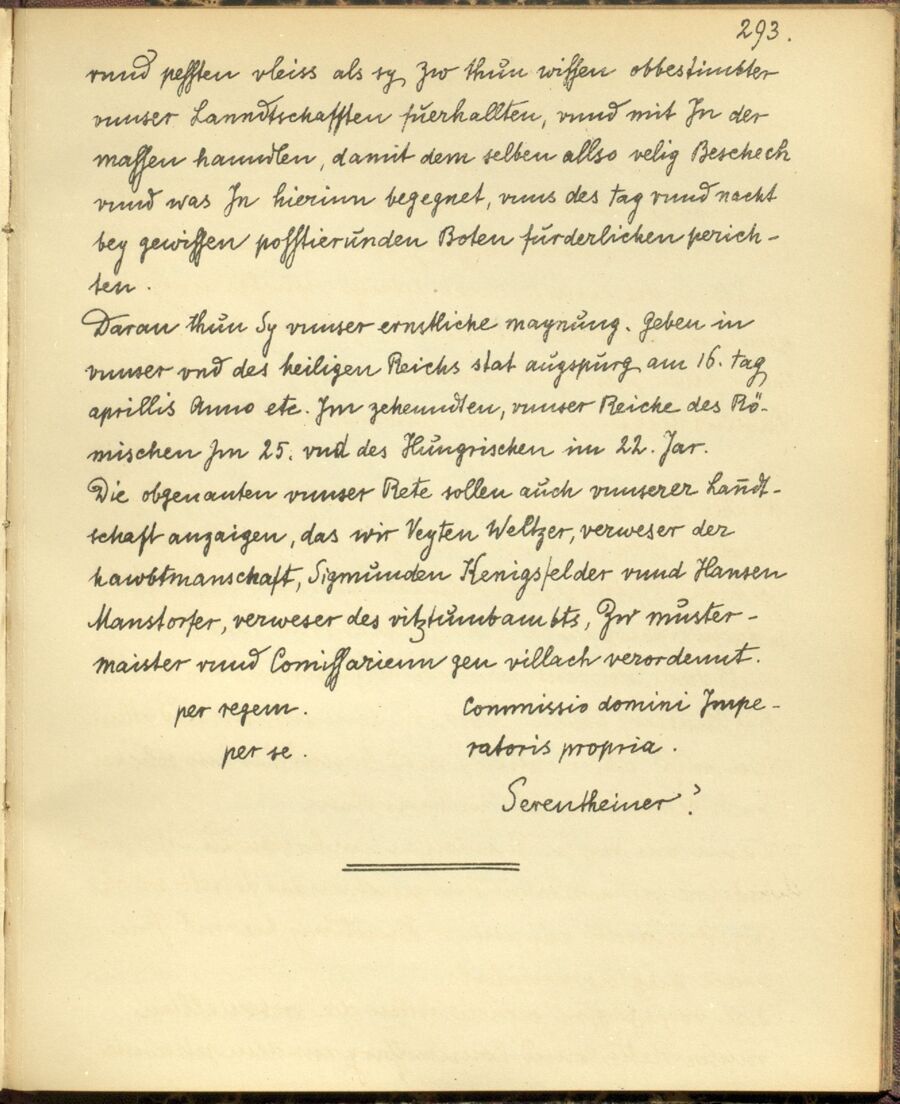 293.
vnnd pessten vleiss als sy zw thun wissen obbestimbter
vnnser Lanndtschafften fuerhallten, vnnd mit In der
massen hanndlen, damit dem selben allso velig Beschech
vnnd was In hierinn begegnet, vnns des tag vnnd nacht
bey gewissen posstierunden Boten furderlichen perich-
ten.
Daran thun Sy vnnser ernstliche maynung. Geben in
vnnser vnd des heiligen Reichs stat augspurg am 16. tag
aprillis Anno etc. Im zehenndten, vnnser Reiche des Rö-
mischen Im 25. vnd des Hungrischen im 22. Jar.
Die obgenanten vnnser Rete sollen auch vnnserer Lanndt-
schaft anzaigen, das wir Veyten Weltzer, verweser der
hawbtmanschaft, Sigmunden Kenigsfelder vnnd Hansen
Manstorfer, verweser des vitztumbambts, Zw muster-
maister vnnd Comissarienn gen villach verordennt.
per regem.
per se.
Commissio domini Impe-
ratoris propria.
Serentheiner?